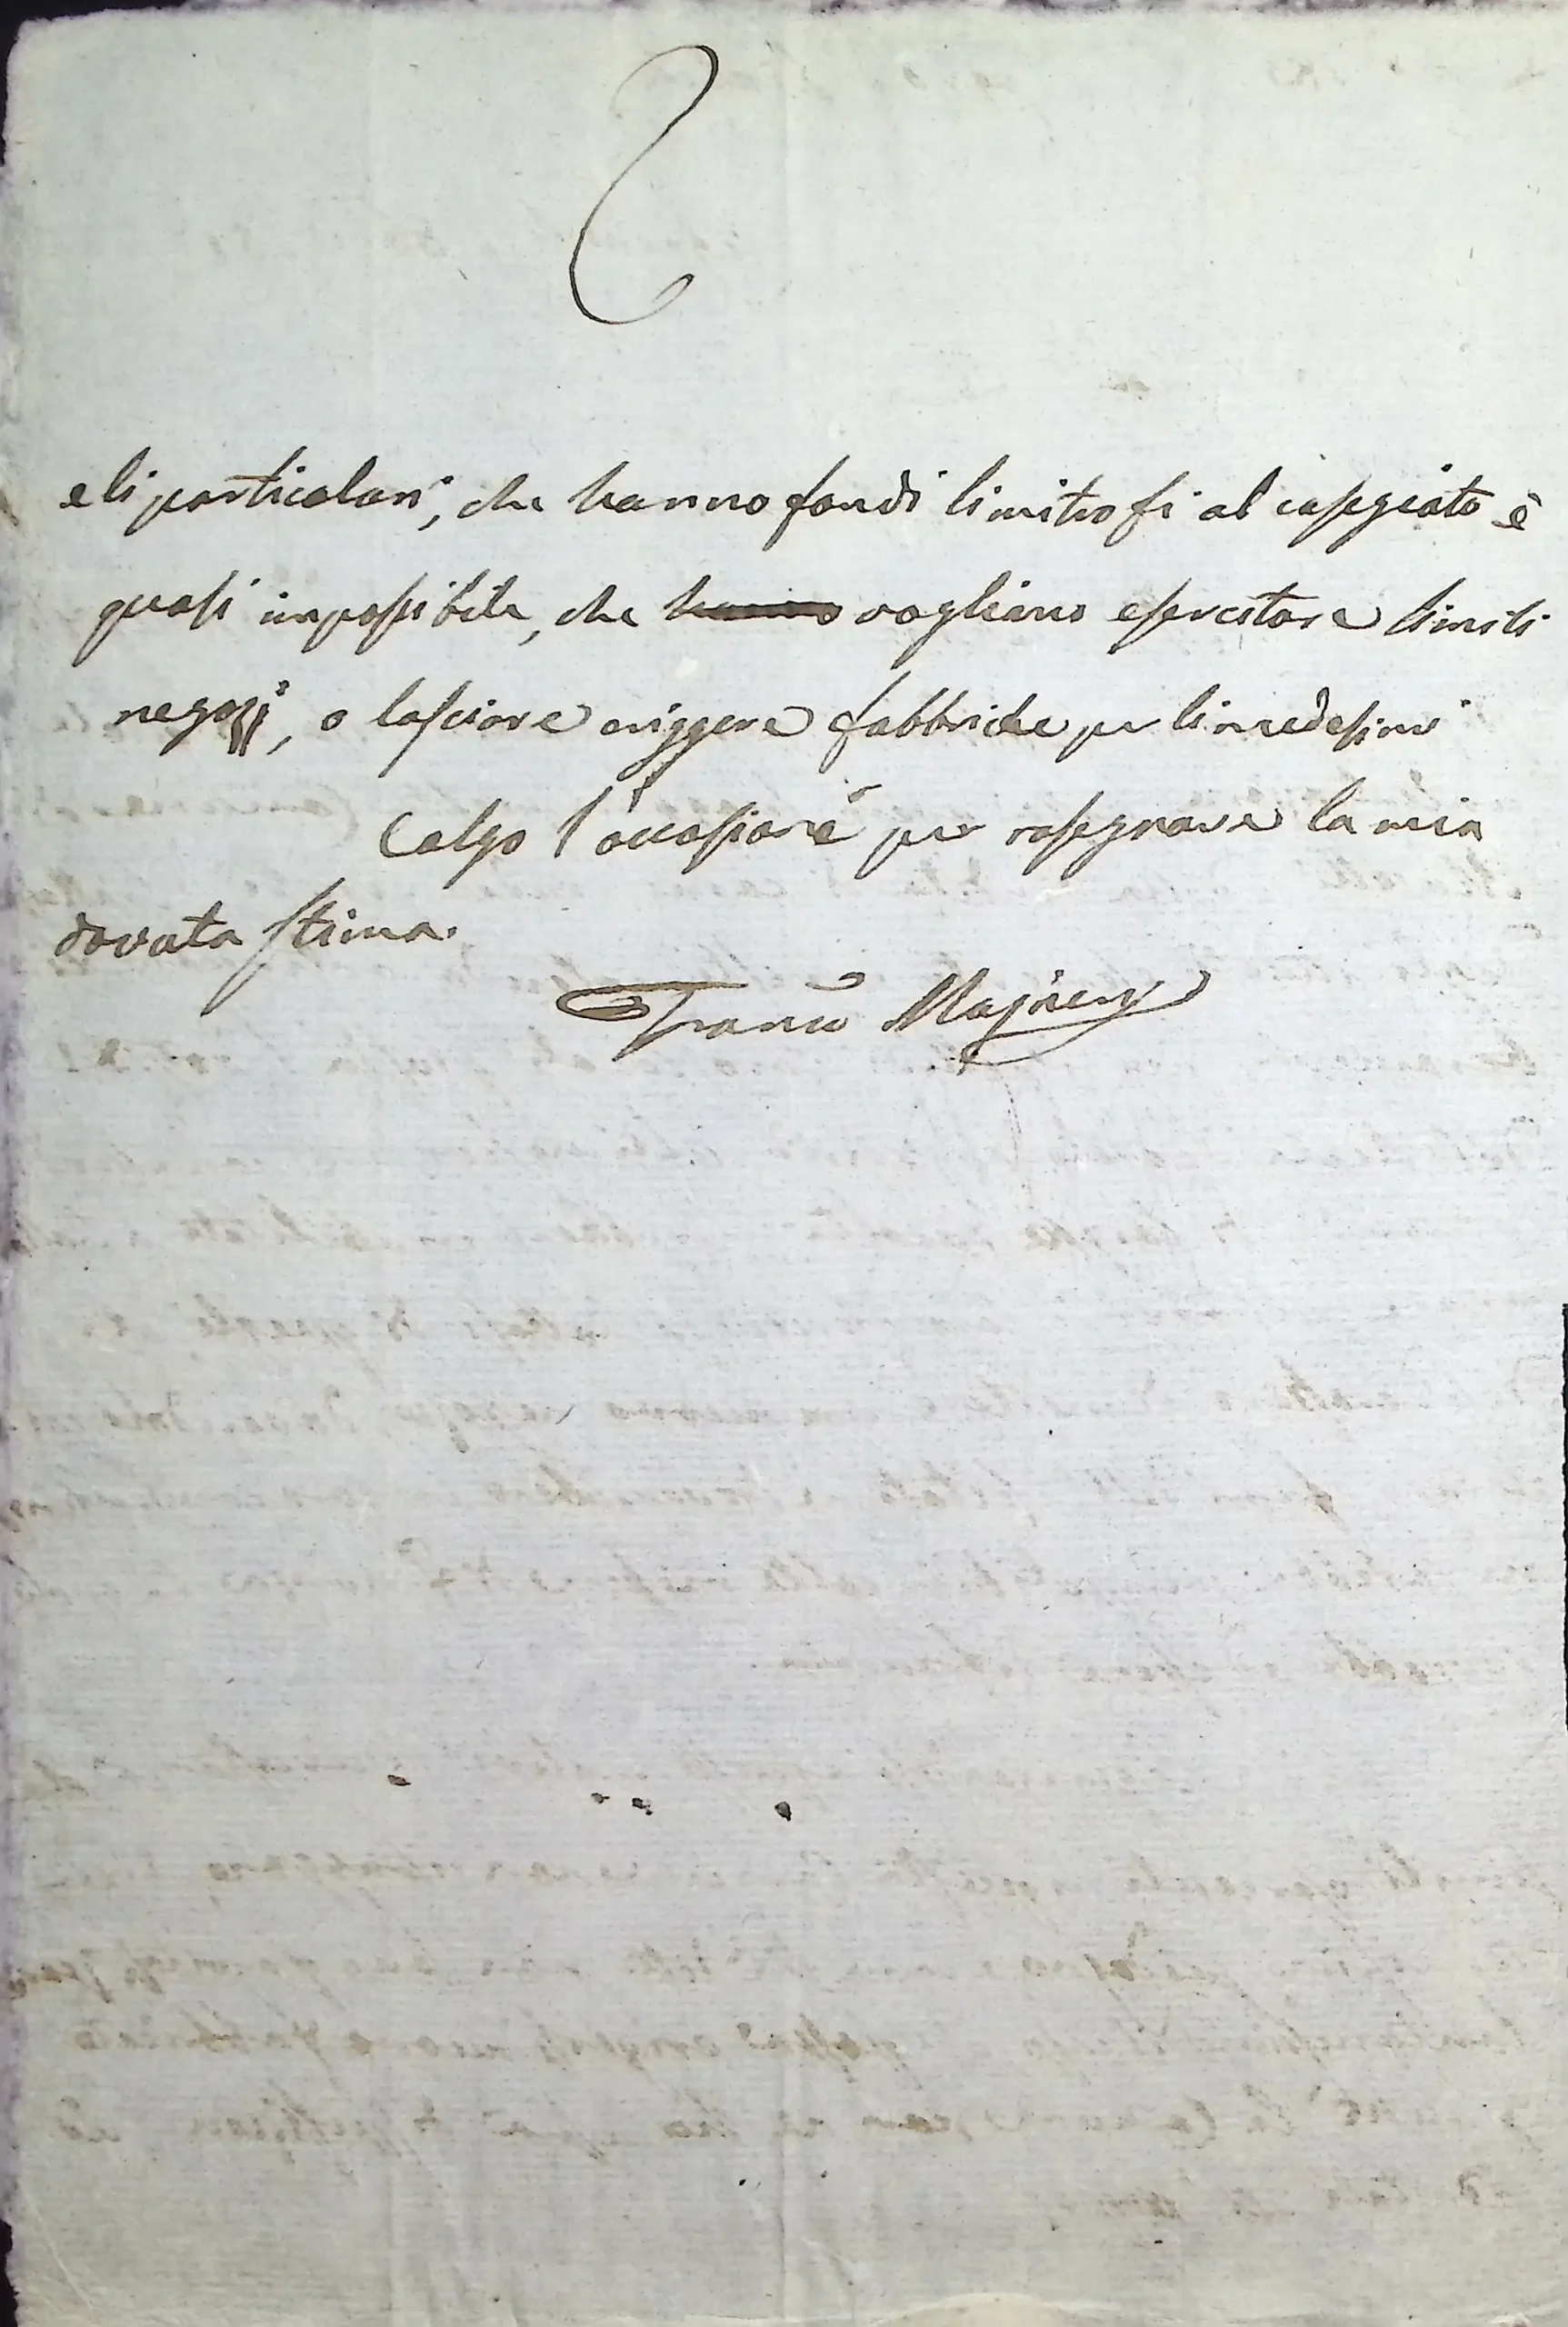 e li particolari, che hanno fondi limitrofi al casegiato è
quasi impossibile, che hanno vogliano esercitare simili
negozj, o lasciare eriggere fabbriche per li medesimi
Colgo l'occasione per rasegnare la mia
dovuta stima.